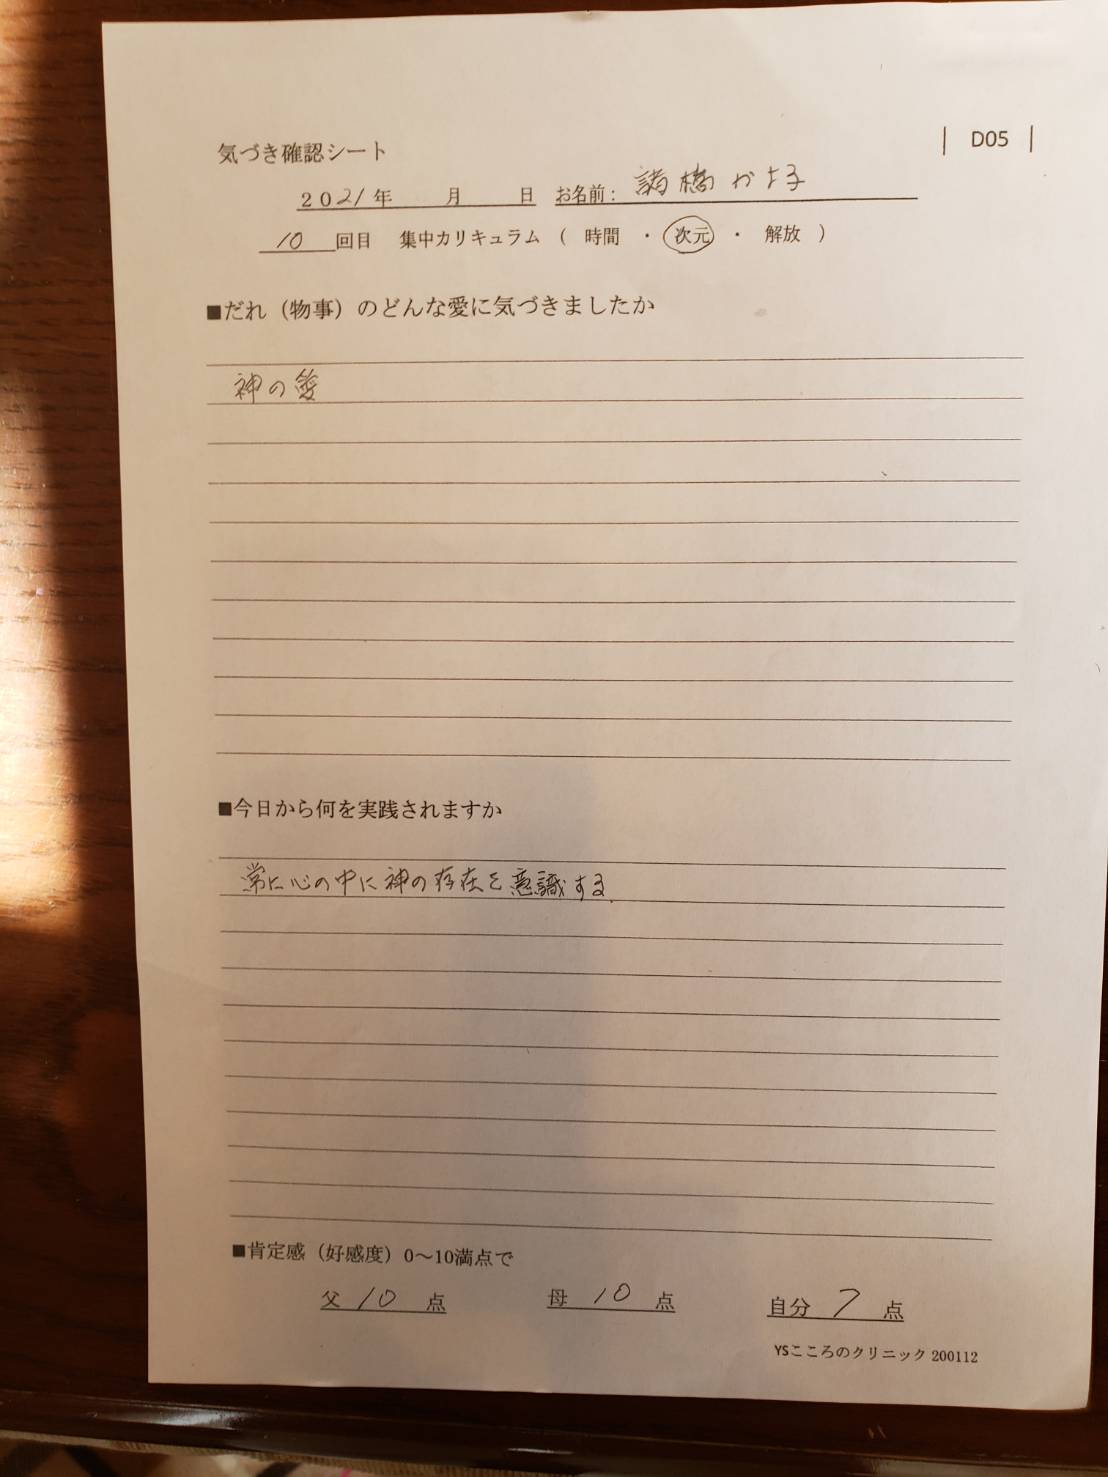 D05
気づき確認シート
2021年 月 日 お名前：諸橋かよ子
10回目 集中カリキュラム （ 時間 ・ 次元 ・ 解放 ）
■だれ（物事）のどんな愛に気づきましたか
神の愛
■今日から何を実践されますか
常に心の中に神の存在を意識する.
■肯定感（好感度）0～10満点で
父 10 点 母 10 点 自分 7 点
YSこころのクリニック 200112